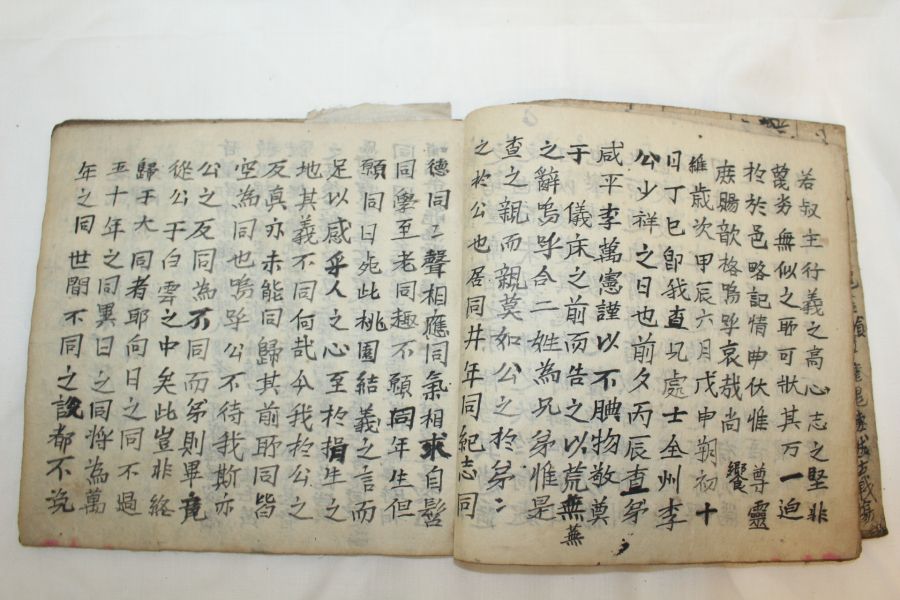 若叔主行義之高心志之堅非
萬劣無似之耶可狀其万一迫
於於邑略記情曲伏惟尊靈
庶賜歆格嗚呼哀哉尚饗
維歲次甲辰六月戊申朔初十
日丁巳卽我査兄處士全州李
公少祥之日也前夕丙辰査弟
咸平李萬憲謹以不腆物敬奠
于儀床之前而告之以荒無蕪
之辭嗚呼合二姓為兄弟惟是
查之親而親莫如公之於弟二
之於公也居同井年同紀志同
德同二聲相應同氣相求自髫
同學至老同趣不願同年生但
願同日死此桃園結義之言而
足以感乎人之心至於捐生之
地其義不同何哉今我於公之
反真亦未能同歸其前耶同皆
空為同也嗚呼公不待我斯亦
公之反同為不同而弟則畢竟
從公于白雲之中矣此豈非終
歸于大同者耶向日之同不過
五十年之同異日之同將為萬
年之同世間不同之說都不洗